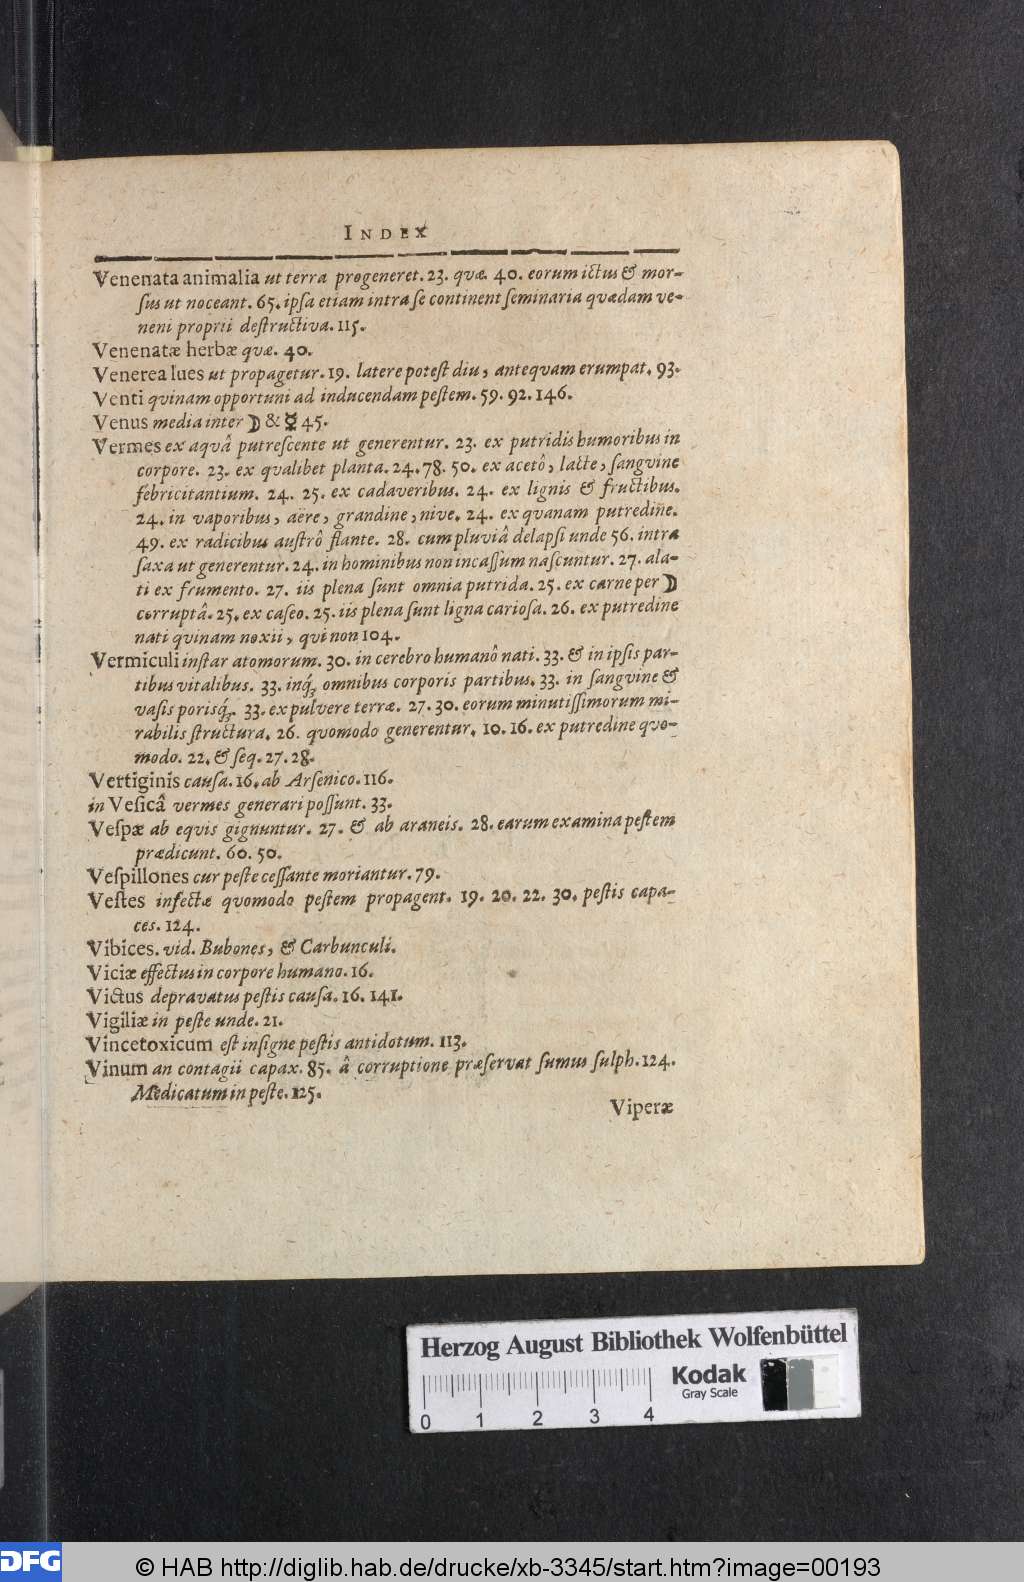 INDEX
Venenata animalia ut terra progeneret. 23. quæ. 40. eorum ictus & mor-
ſus ut noceant. 65. ipſa etiam intra ſe continent ſeminaria quædam ve-
neni proprii deſtructiva. 115.
Venenatæ herbæ quæ. 40.
Venerea lues ut propagetur. 19. latere poteſt diu, antequam erumpat. 93.
Venti quinam opportuni ad inducendam peſtem. 59. 92. 146.
Venus media inter ☽ & ☿ 45.
Vermes ex aquâ putreſcente ut generentur. 23. ex putridis humoribus in
corpore. 23. ex qvalibet planta. 24. 78. 50. ex acetô, lacte, ſangvine
febricitantium. 24. 25. ex cadaveribus. 24. ex lignis & fructibus.
24. in vaporibus, aëre, grandine, nive. 24. ex qvanam putredine.
49. ex radicibus auſtrô flante. 28. cum pluviâ delapſi unde 56. intra
ſaxa ut generentur. 24. in hominibus non incaſſum naſcuntur. 27. ala-
ti ex frumento. 27. iis plena ſunt omnia putrida. 25. ex carne per ☽
corruptâ. 25. ex caſeo. 25. iis plena ſunt ligna carioſa. 26. ex putredine
nati quinam noxii, qui non 104.
Vermiculi inſtar atomorum. 30. in cerebro humanô nati. 33. & in ipſis par-
tibus vitalibus. 33. inq́; omnibus corporis partibus. 33. in ſangvine &
vaſis porisq́;. 33. ex pulvere terræ. 27. 30. eorum minutiſſimorum mi-
rabilis ſtructura. 26. quomodo generentur. 10. 16. ex putredine quo-
modo. 22. & ſeq. 27. 28.
Vertiginis cauſa. 16. ab Arſenico. 116.
in Veſicâ vermes generari poſſunt. 33.
Veſpæ ab eqvis gignuntur. 27. & ab araneis. 28. earum examina peſtem
prædicunt. 60. 50.
Veſpillones cur peſte ceſſante moriantur. 79.
Veſtes infectæ qvomodo peſtem propagent. 19. 20. 22. 30. peſtis capa-
ces. 124.
Vibices. vid. Bubones, & Carbunculi.
Viciæ effectus in corpore humano. 16.
Victus depravatus peſtis cauſa. 16. 141.
Vigiliæ in peſte unde. 21.
Vincetoxicum eſt inſigne peſtis antidotum. 113.
Vinum an contagii capax. 85. â corruptione præſervat fumus ſulph. 124.
Medicatum in peſte. 125.
Viperæ
Herzog August Bibliothek Wolfenbüttel
Kodak
Gray Scale
0 1 2 3 4
DFG © HAB http://diglib.hab.de/drucke/xb-3345/start.htm?image=00193